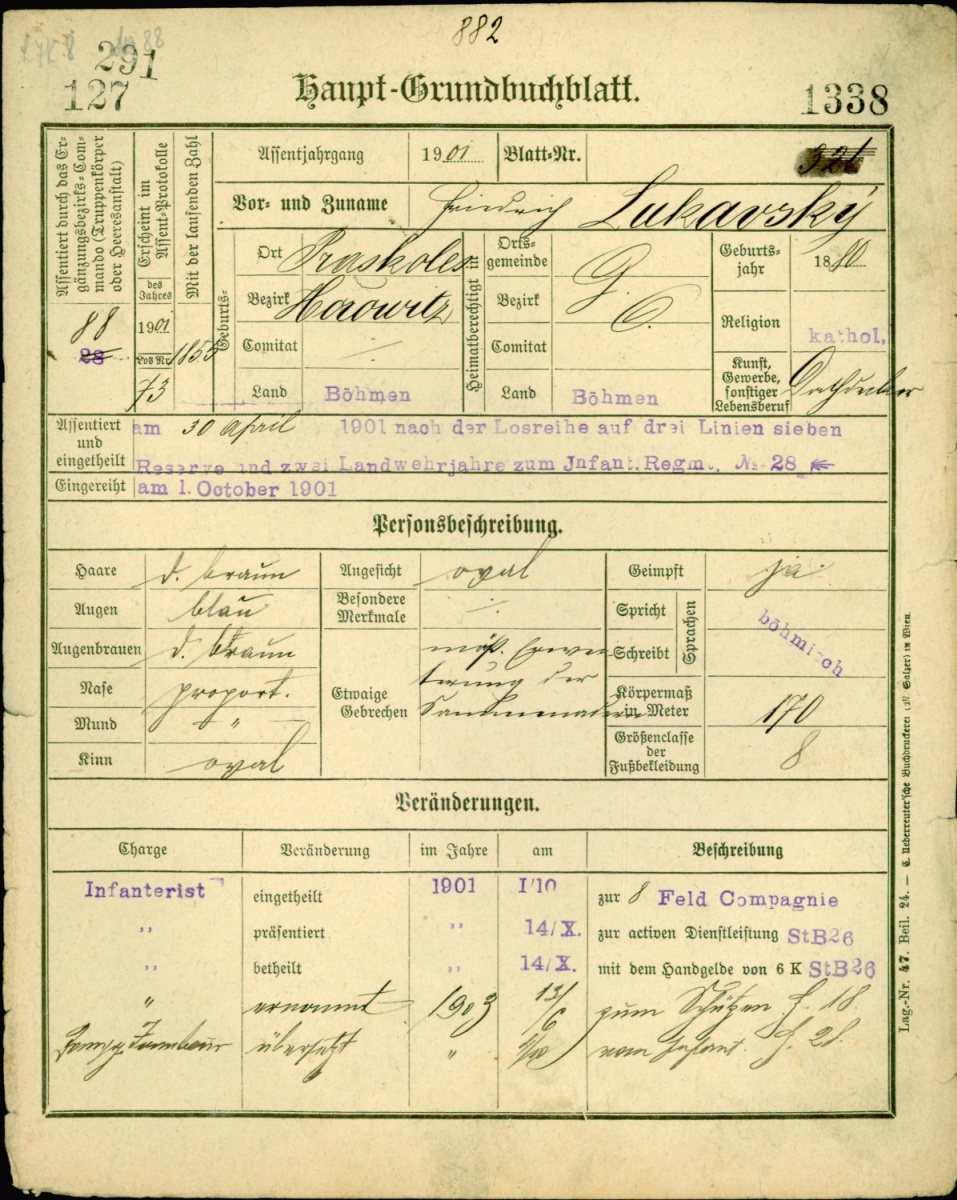 882
291
127
Haupt-Grundbuchblatt.
1338
Assentiert durch das Er-
gänzungsbezirks-Com-
mando (Truppenkörper
oder Heeresanstalt)
88
28
Erscheint im
Assent-Protokolle
des
Jahres
1901
Los Nr.
73
Mit der laufenden Zahl
1855
Assentjahrgang 1901 Blatt-Nr. 326
Vor- und Zuname Friedrich Lukavský
Geburts-
Ort Praskoles
Bezirk Horowitz
Comitat ./.
Land Böhmen
Heimatberechtigt in
Orts-
gemeinde G.
Bezirk G.
Comitat
Land Böhmen
Geburts-
jahr 1880
Religion kathol.
Kunst,
Gewerbe,
sonstiger
Lebensberuf Dachdecker
Assentiert
und
eingetheilt
am 30 April 1901 nach der Losreihe auf drei Linien sieben
Reserve und zwei Landwehrjahre zum Jnfant. Regmt. № 28
Eingereiht am 1. October 1901
Personsbeschreibung.
Haare d. braun
Augen blau
Augenbrauen d. braun
Nase proport.
Mund "
Kinn oval
Angesicht oval
Besondere
Merkmale ./.
Etwaige
Gebrechen
mäß. Erwei-
terung der
Geimpft ja.
Spricht
Schreibt
Sprachen
böhmisch
Körpermaß
in Meter 170
Größenclasse
der
Fußbekleidung 8
Veränderungen.
Charge Veränderung im Jahre am Beschreibung
Infanterist eingetheilt 1901 1/10 zur 8 Feld Compagnie
" präsentiert " 14/X. zur activen Dienstleistung StB26
" betheilt " 14/X. mit dem Handgelde von 6 K StB26
" ernannt 1903 13/6 zum Schützen 18.
Comp. Tambour übersetzt " vom Infant. 28.
Lag.-Nr. 47. Beil. 24. — C. Ueberreuter'sche Buchdruckerei (M. Salzer) in Wien.